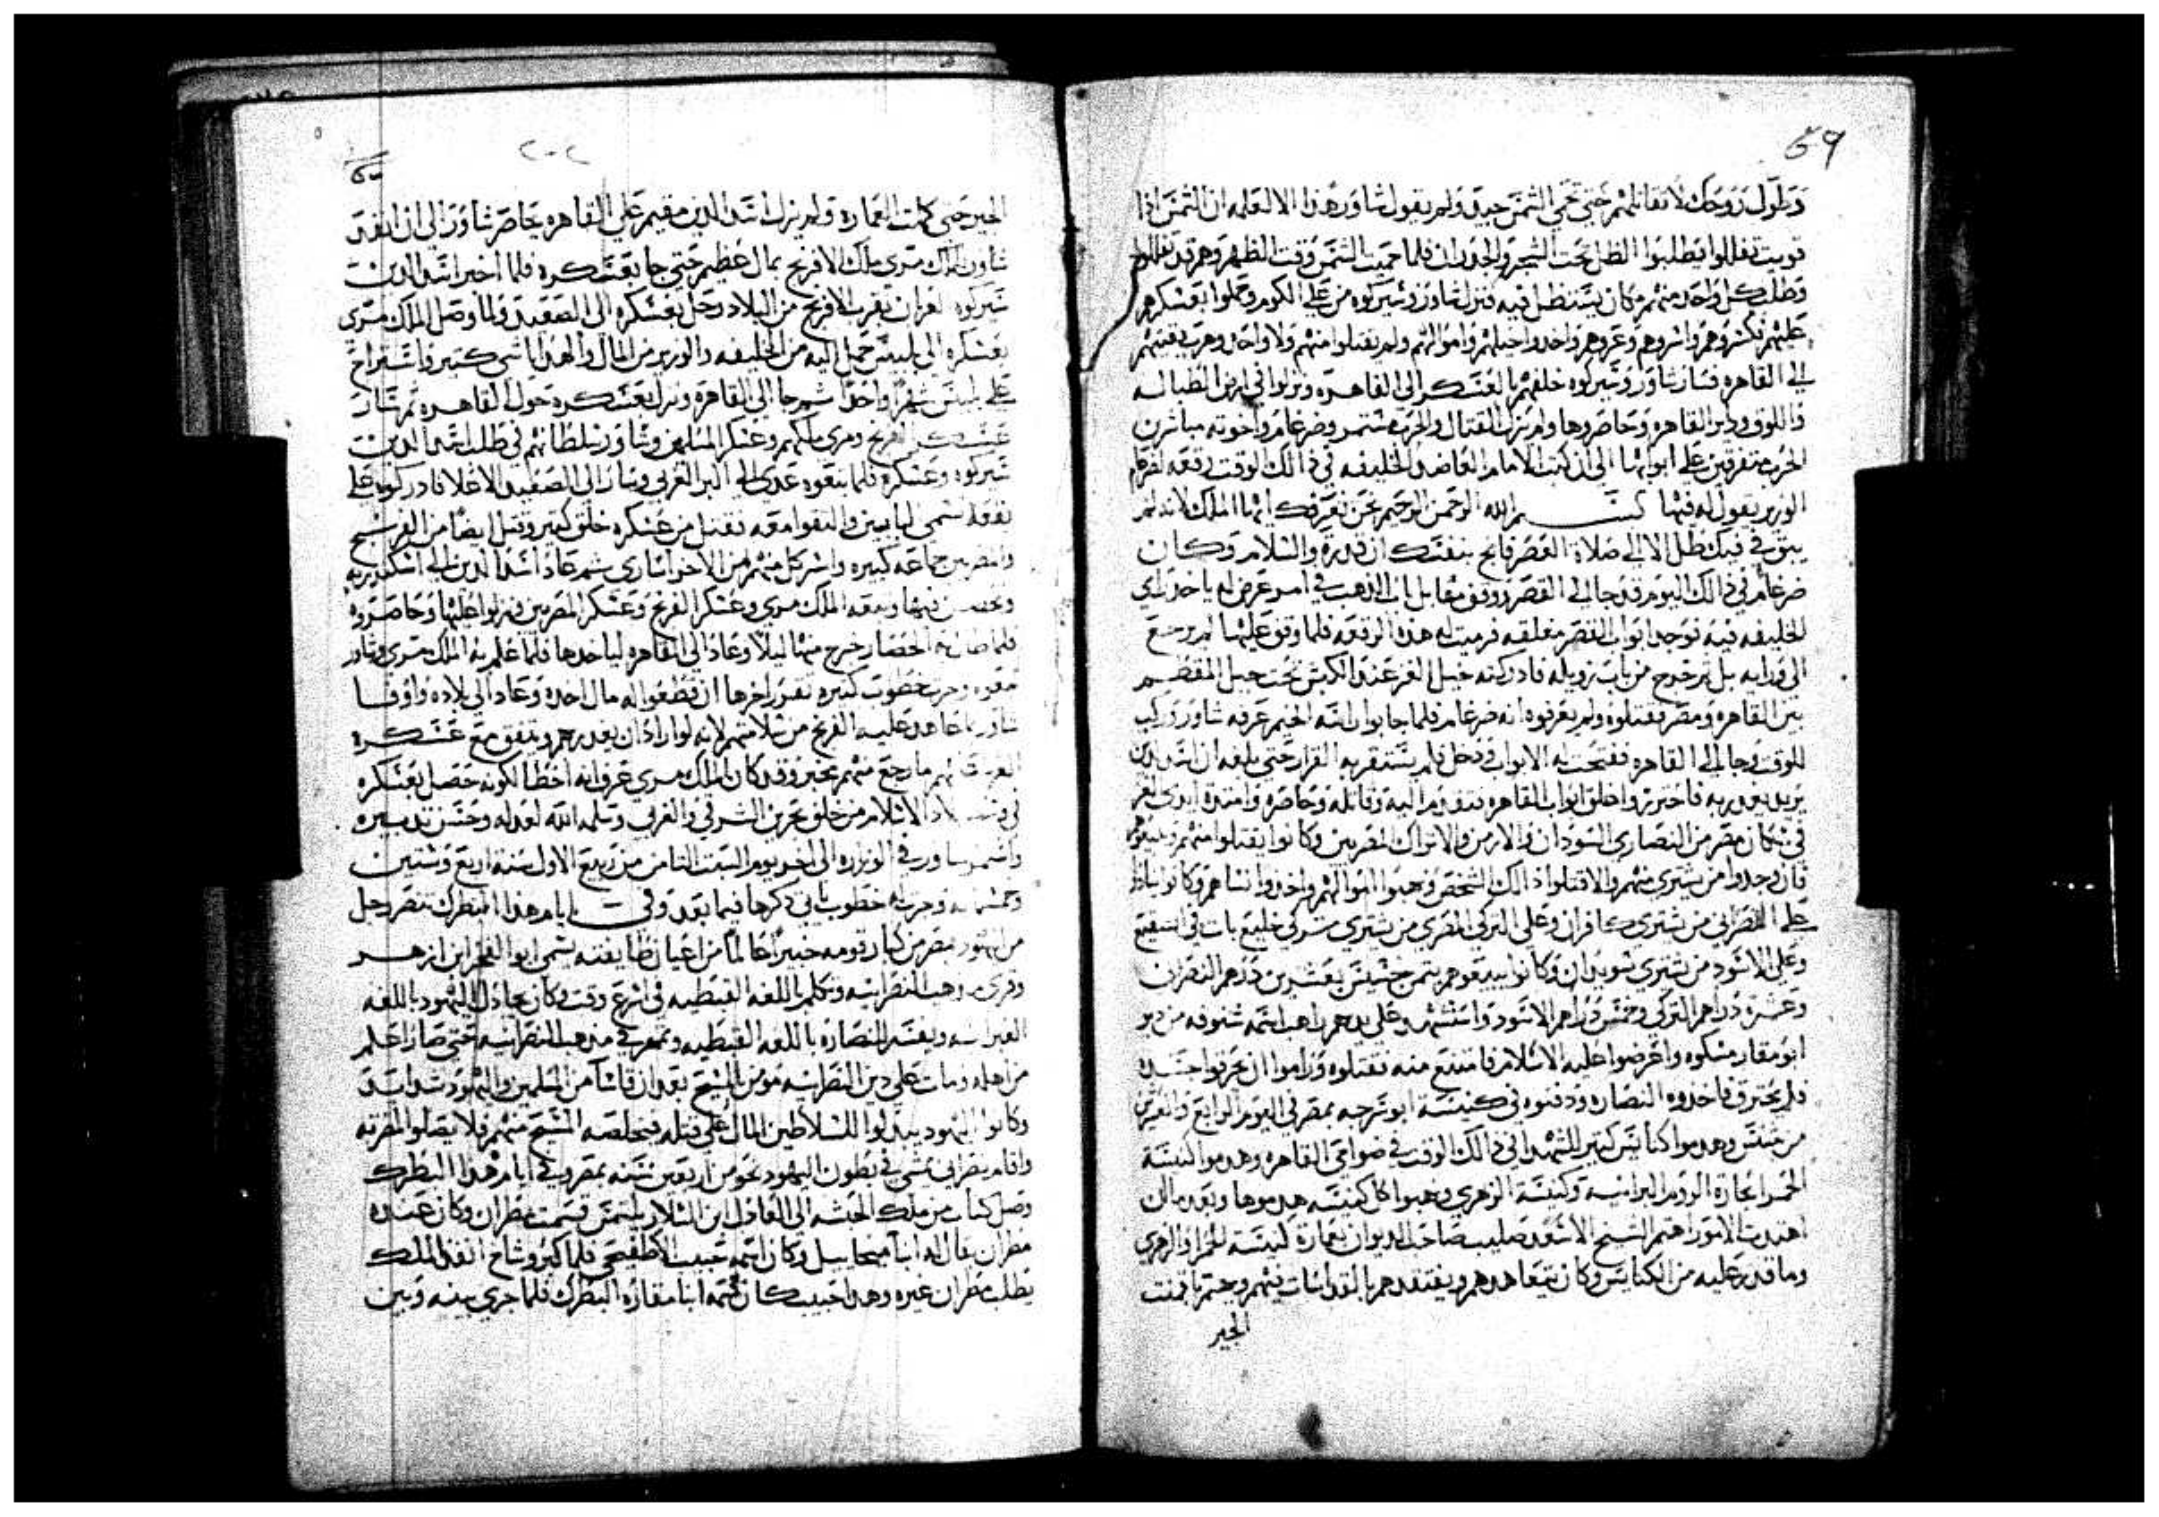 وطول روحك لا تقاتلهم حتى تحمى الشمس جيدا ولم يقول شاور هذا الا لعلمه ان الشمس اذا
قويت تقللوا يطلبوا الظل تحت الشجر والجدران فلما حميت الشمس وقت الظهر وهم قد تقللوا
وطلب كل واحد منهم مكان يستظل فيه فنزل شاور وشيركوه من على الكوم وحملوا بعسكرهم
عليهم فكسروهم واسروهم وعروهم واخدوا خيلهم واموالهم ولم يقتلوا منهم ولا واحد وهرب بقيتهم
الى القاهره فسار شاور وشيركوه خلفهم بالعسكر الى القاهره ونزلوا في ارض الطباله
واللوق وداير القاهره وحاصروها ولم تزل القتال والحرب مستمر وضرغام واخوته مباشرين
الحرب متفرقين على ابوابها الى ان كتب الامام العاضد الخليفه في ذالك الوقت رقعه لضرغام
الوزير يقول له فيها بسم الله الرحمن الرحيم نحن نعرفك ايها الملك لانه لم
يبق في فيك ظل الا الى صلاة العصر فانج بنفسك ان قدرت والسلام وكان
ضرغام في ذالك اليوم قد جا الى القصر ووقف مقابل باب الذهب في امر عرض له ياخد راي
الخليفه فيه فوجد ابواب القصر مغلقه فرميت له هذه الرقعه فلما وقف عليها لم يرجع
الى ورايه بل خرج من باب زويله فادركته خيل الغز عند الكبش تحت جبل المقطم
بين القاهره ومصر فقتلوه ولم يعرفوه انه ضرغام فلما جابوا راسه الخيم عرفه شاور وركب
للوقت وجا الى القاهره ففتحت له الابواب ودخل فلم يستقر به القرار حتى بلغه ان اسد الدين
يريد يغدر به فاحترز واغلق ابواب القاهره فتقدم اليه وقاتله وحاصره وامتدت ايدى الغز
في سكان مصر من النصارى السودان والارمن والاتراك المصريين وكانوا يقتلوا منهم ويبيعوهم
فان وجدوا من يشتري منهم والا قتلوا ذالك الشخص ونهبوا اموالهم واخدوا نساهم وكانوا ينادوا
على النصراني من يشتري كافر ان وعلى التركي المصري من يشتري
وعلى الاسود من يشتري سويدان وكانوا يبيعوهم بتمن خسيس بعشرين درهم النصران
وعشرة دراهم التركي وخمس دراهم الاسود واستشهد على يدهم راهب اسمه شنوفه من دير
ابو مقار مسكوه واعرضوا عليه الاسلام فامتنع منه فقتلوه وراموا ان يحرقوا جسده
فلم يحترق فاخدوه النصاره ودفنوه في كنيسة ابو سرجه بمصر في اليوم الرابع والعشرين
من شنس وهدموا كنايس كتير للشهدا في ذالك الوقت في ضواحي القاهره وهدموا كنيسة
الحمرا بحارة الروم البرانيه وكنيسة الزهري ونهبوا كل كنيسه هدموها وبعد ما ان
اهتدت الامور اهتم الشيخ الاسعد صليب صاحب الديوان بعمارة كنيسة الحمرا والزهري
وما قدر عليه من الكنايس وكان يتعاهدهم ويفتقدهم بالقداسات فيهم ويهتم بافنت
الخير
٢٠٢
الخير حتى كملت العماره ولم يزل اسد الدين مقيم على القاهره يحاصر شاور الى ان انفد
شاور لملك مري ملك الافرنج بمال عظيم حتى جا بعسكره فلما اخبر اسد الدين
شيركوه الغز ان بقرب الافرنج من البلاد رحل بعسكره الى الصعيد ولما وصل الملك مري
بعسكره الى بلبيس حمل اليه من الخليفه والوزير من المال والهدايا شي كتير واستراح
على بلبيس شهرا واحدا ثم جا الى القاهره ونزل بعسكره حول القاهره ثم سار
عسكر الافرنج ومري ملكهم وعسكر المسلمين وشاور سلطانهم في طلب اسد الدين
شيركوه وعسكره فلما تبعوه عدى الى البر الغربي وسار الى الصعيد الاعلا فادركوه على
بقعه تسمى البابين والتقوا معه فقتل من عسكره خلق كتير وقتل ايضا من الفرنج
والمصريين جماعه كبيره واسر كل منهم من الاخر اسارى ثم عاد اسد الدين الى اسكندريه
وتحصن فيها وتبعه الملك مري وعسكر الفرنج وعسكر المصريين ونزلوا عليها وحاصروه
فلما طال به الحصار خرج منها ليلا وعاد الى القاهره لياخدها فلما علم به الملك مري وشاور
تبعوه وجرت خطوب كتيره تقرر اخرها ان قطعوا له مال اخده وعاد الى بلاده واوفا
شاور ما عاهد عليه الفرنج من سلامتهم لانه لو اراد ان يغدر بهم ويتفق مع عسكره
الغز عليهم ما رجع منهم مخبر وقد كان الملك مري عرف انه اخطا لكونه حصل بعسكره
في وسط بلاد الاسلام من خلف بحرين الشرقي والغربي وسلمه الله لعدله وحسن تدبيره
واستمر شاور في الوزاره الى اخر يوم السبت التامن من ربيع الاول سنة اربع وستين
وخمسمايه وجرت له خطوب ياتي ذكرها فيما بعد وفي ايام هذا البطرك تنصر رجل
من اليهود بمصر من كبار قومه خبيرا عالما من اعيان طايفته يسمى ابو الفخر ابن ازهر
وقرى مدهب النصرانيه وتكلم باللغه القبطيه في اسرع وقت وكان يجادل اليهود باللغه
العبرانيه ويفسر للنصاره باللغه القبطيه وتمهر في مدهب النصرانيه حتى صار اعلم
من اهله ومات على دين النصرانيه مومن بالمسيح بعد ان قاسا من المسلمين واليهود شدايد
وكانوا اليهود يبدلوا للسلاطين المال على قتله فيخلصه المسيح منهم فلا يصلوا لمضرته
واقام نصراني يمشي في بطون اليهود نحو من اربعين سنه بمصر وفي ايام هذا البطرك
وصل كتاب من ملك الحبشه الى العادل ابن السلار يلتمس قسمت مطران وكان عنده
مطران يقال له انبا ميخاييل وكان اسمه حبيب الاطفيحي فلما كبر وشاخ انفد الملك
يطلب مطران غيره وهدا حبيب كان قسمه انبا مقاره البطرك فلما جرى بينه وبين